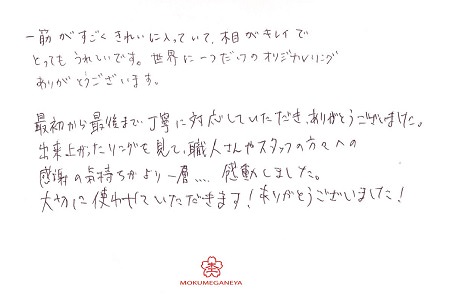 一筋がすごくきれいに入っていて、木目がキレイで
とってもうれしいです。世界に一つだけのオリジナルリング
ありがとうございます。
最初から最後まで丁寧に対応していただき、ありがとうございました。
出来上がったリングを見て、職人さんやスタッフの方々への
感謝の気持ちがより一層…… 感動しました。
大切に使わせていただきます！ありがとうございました！
MOKUMEGANEYA